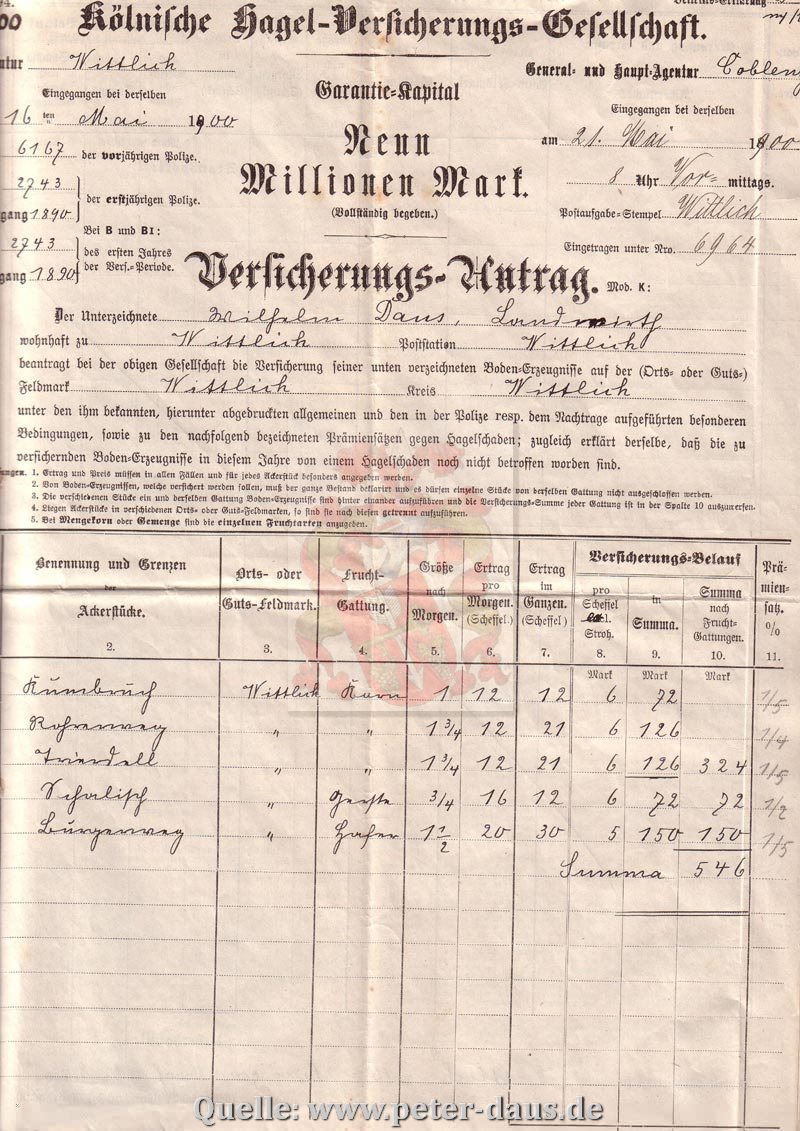 Kölnische Hagel-Versicherungs-Gesellschaft.
Wittlich
General- und Haupt-Agentur Coblenz
Eingegangen bei derselben
Garantie-Kapital
Eingegangen bei derselben
16 ten Mai 1900
Neun
am 21. Mai 1900
6167 der vorjährigen Polize.
Millionen Mark.
8 Uhr Vor- mittags.
2743
der erstjährigen Polize.
gang 1890
(Vollständig begeben.)
Postaufgabe-Stempel Wittlich
Bei B und B1:
2743 des ersten Jahres
gang 1890 der Vers.-Periode.
Eingetragen unter Nro. 6964
Versicherungs-Antrag. Mod. K:
Der Unterzeichnete Wilhelm Daus, Landwirth
wohnhaft zu Wittlich Poststation Wittlich
beantragt bei der obigen Gesellschaft die Versicherung seiner unten verzeichneten Boden-Erzeugnisse auf der (Orts- oder Guts-)
Feldmark Wittlich Kreis Wittlich
unter den ihm bekannten, hierunter abgedruckten allgemeinen und den in der Polize resp. dem Nachtrage aufgeführten besonderen
Bedingungen, sowie zu den nachfolgend bezeichneten Prämiensätzen gegen Hagelschaden; zugleich erklärt derselbe, daß die zu
versichernden Boden-Erzeugnisse in diesem Jahre von einem Hagelschaden noch nicht betroffen worden sind.
1. Ertrag und Preis müssen in allen Fällen und für jedes Ackerstück besonders angegeben werden.
2. Von Boden-Erzeugnissen, welche versichert werden sollen, muß der ganze Bestand deklarirt und es dürfen einzelne Stücke von derselben Gattung nicht ausgeschlossen werden.
3. Die verschiedenen Stücke ein und derselben Gattung Boden-Erzeugnisse sind hinter einander aufzuführen und die Versicherungs-Summe jeder Gattung ist in der Spalte 10 auszuwerfen.
4. Liegen Ackerstücke in verschiedenen Orts- oder Guts-Feldmarken, so sind sie nach diesen getrennt aufzuführen.
5. Bei Mengekorn oder Gemenge sind die einzelnen Fruchtarten anzugeben.
Benennung und Grenzen der Ackerstücke. 2.
Orts- oder Guts-Feldmark. 3.
Frucht-Gattung. 4.
Größe nach Morgen. 5.
Ertrag pro Morgen. (Scheffel.) 6.
Ertrag im Ganzen. (Scheffel) 7.
Versicherungs-Belauf
pro Scheffel Stroh. 8.
in Summa. 9.
Summa nach Frucht-Gattungen. 10.
Prämiensatz. % 11.
Mark Mark Mark
Kumbruch Wittlich Korn 1 12 12 6 72 1/5
Rohrerweg " " 1 3/4 12 21 6 126 1/4
" " 1 3/4 12 21 6 126 324 1/5
" Gerste 3/4 16 12 6 72 72 1/2
Bürgerweg " Hafer 1 1/2 20 30 5 150 150 1/5
Summa 546
Quelle: www.peter-daus.de